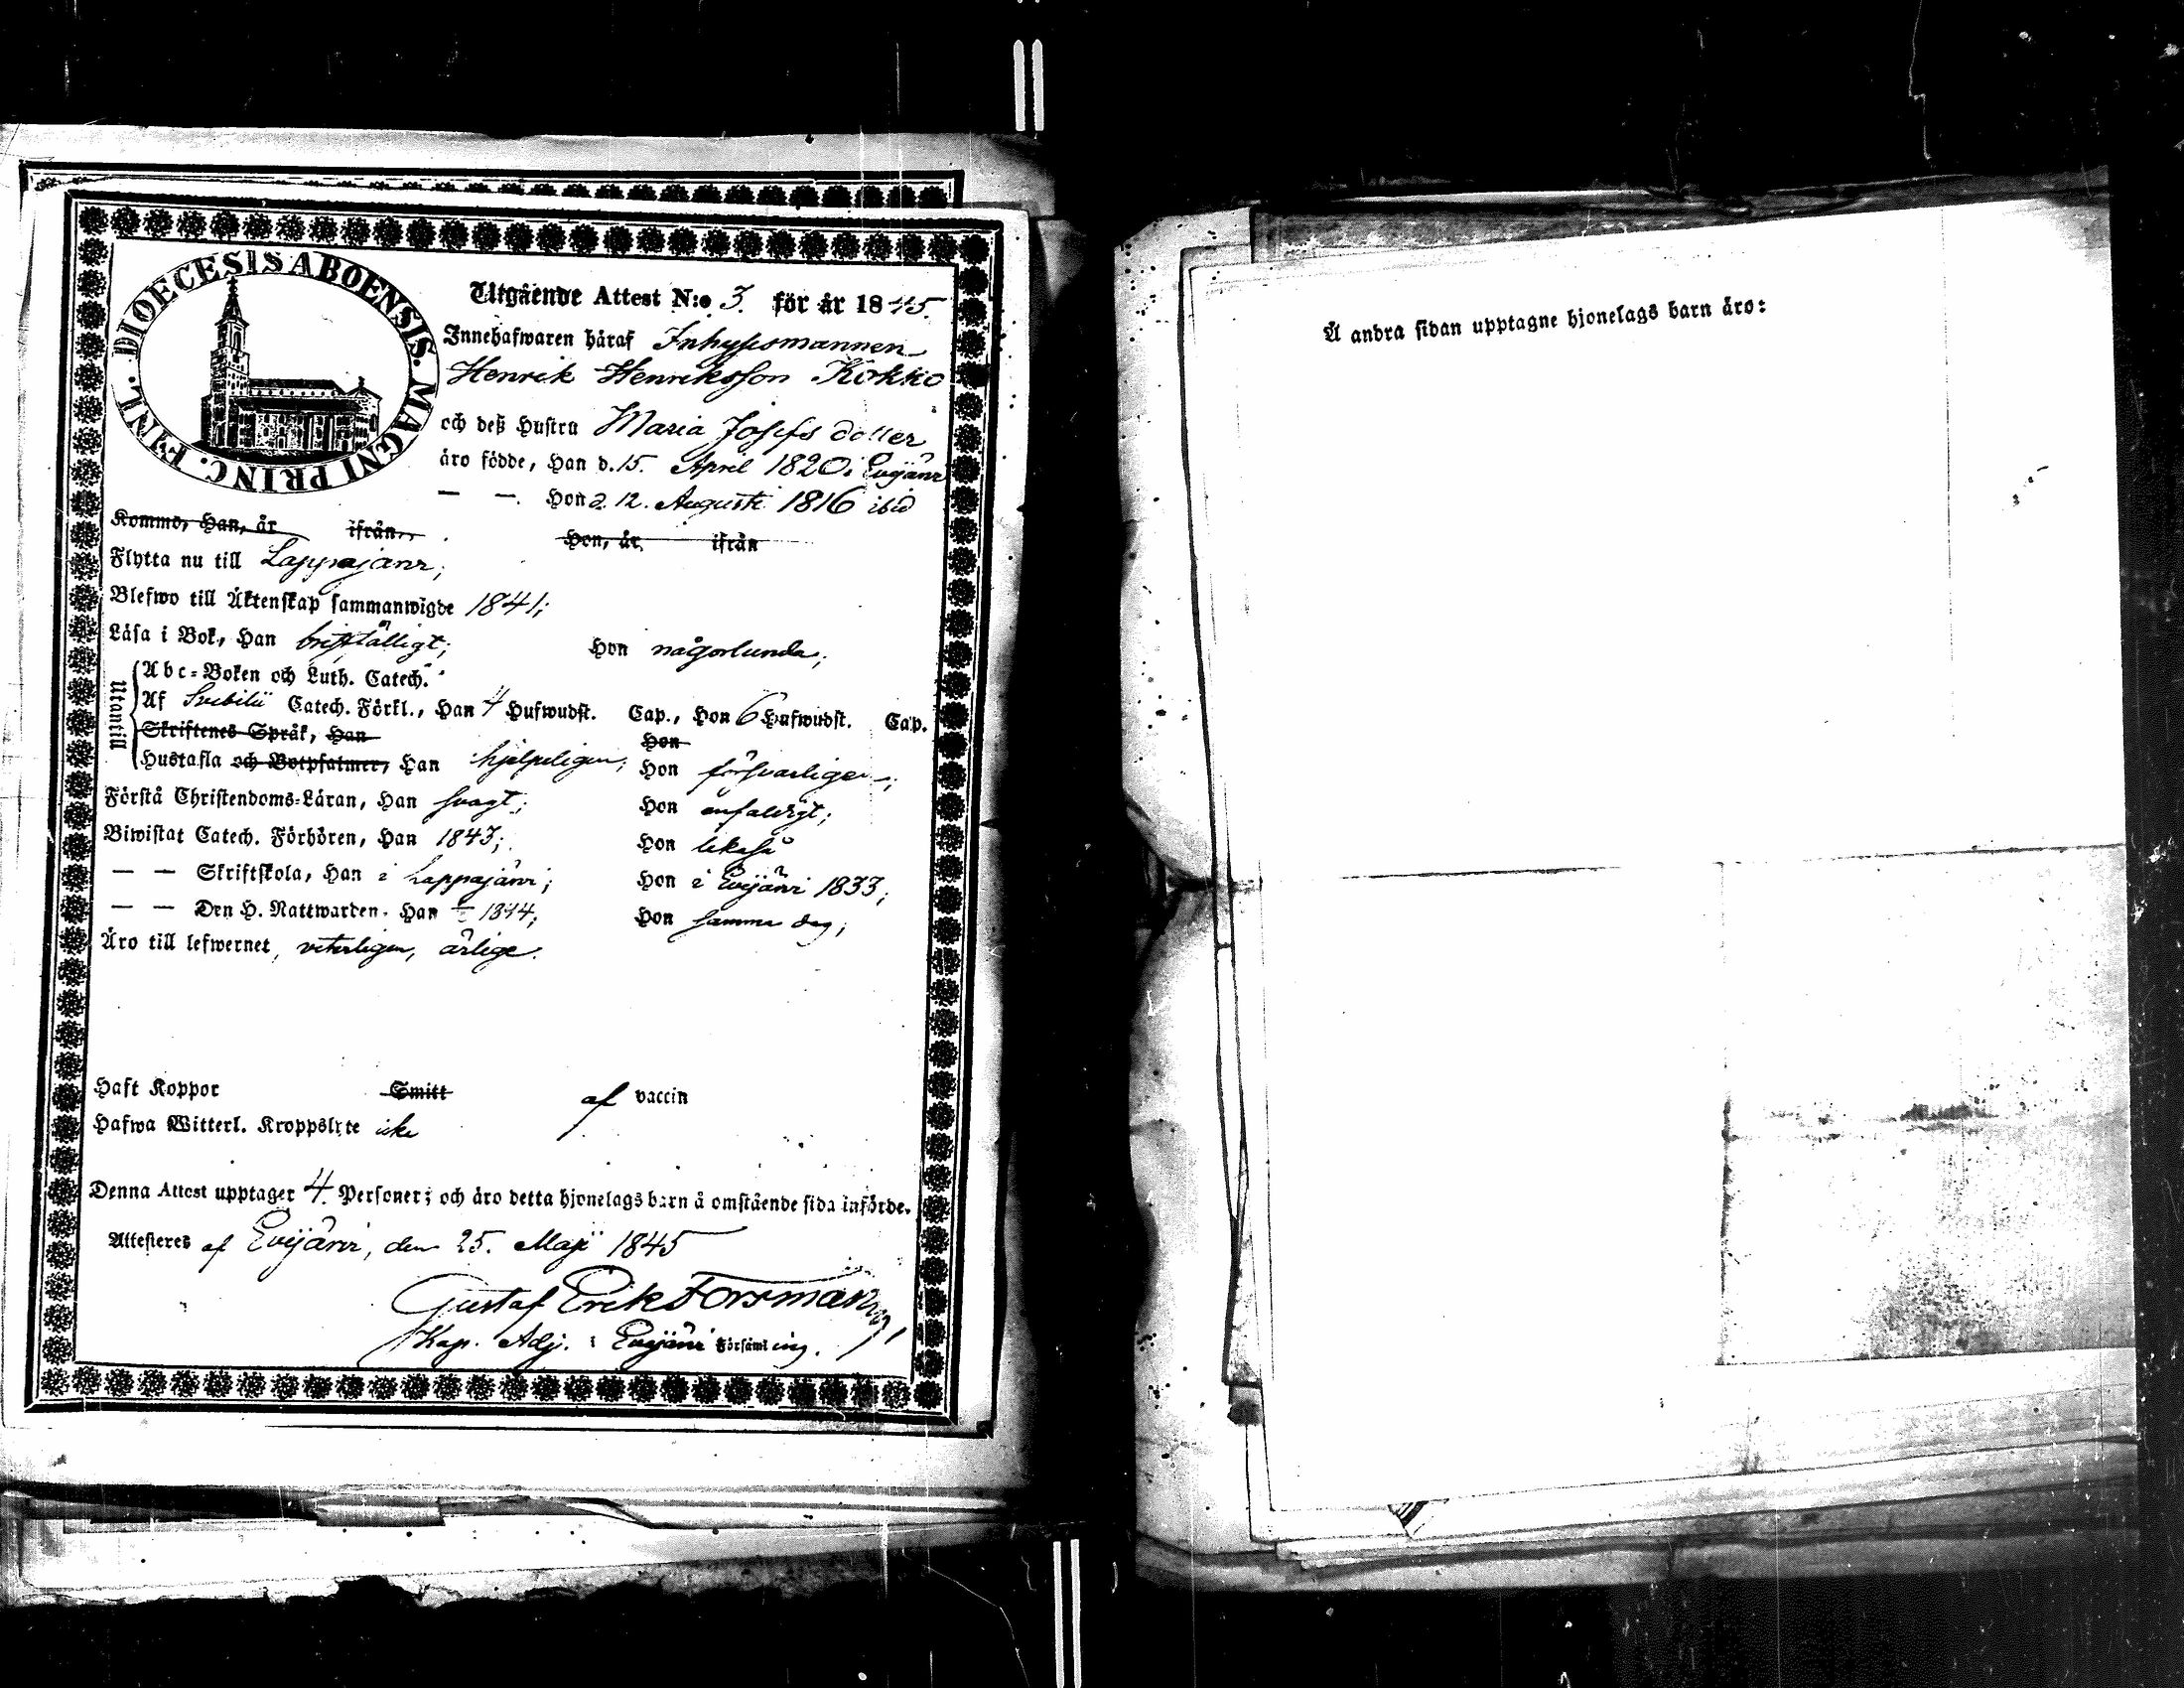 DIOECESIS ABOENSIS. MAGNI PRINC. FINL.
Utgående Attest N:o 3. för år 1845.
Innehafwaren häraf Inhysesmannen
Henrik Henriksson Kokko
och deß Hustru Maria Josefs dotter
äro födde, Han d. 15. April 1820 i Evijärvi
— — Hon d. 12. Augusti 1816 ibid
Kommo, Han, år ifrån Hon, år ifrån
Flytta nu till Lappajärvi;
Blefwo till Äktenskap sammanwigde 1841;
Läsa i Bok, Han bristfälligt; Hon någorlunda;
Utantill
Abc-Boken och Luth. Catech.
Af Svebilii Catech. Förkl., Han 4 Hufwudst. Cap., Hon 6 Hufwudst. Cap.
Skriftenes Språk, Han Hon
Hustafla och Botpsalmer, Han hjelpeligen; Hon försvarligen;
Förstå Christendoms-Läran, Han svagt; Hon enfaldigt;
Biwistat Catech. Förhören, Han 1843; Hon likaså
— — Skriftskola, Han i Lappajärvi; Hon i Evijärvi 1833;
— — Den H. Nattwarden. Han 1844; Hon samma dag;
Äro till lefwernet, veterligen, ärlige.
Haft Koppor Smitt af vaccin
Hafwa Witterl. Kroppslyte icke
Denna Attest upptager 4. Personer; och äro detta hjonelags barn å omstående sida införde.
Attesteres af Evijärvi, den 25. Maji 1845
Gustaf Erik Forsman,
Kap. Adj. i Evijärvi Församling.
Å andra sidan upptagne hjonelags barn äro: